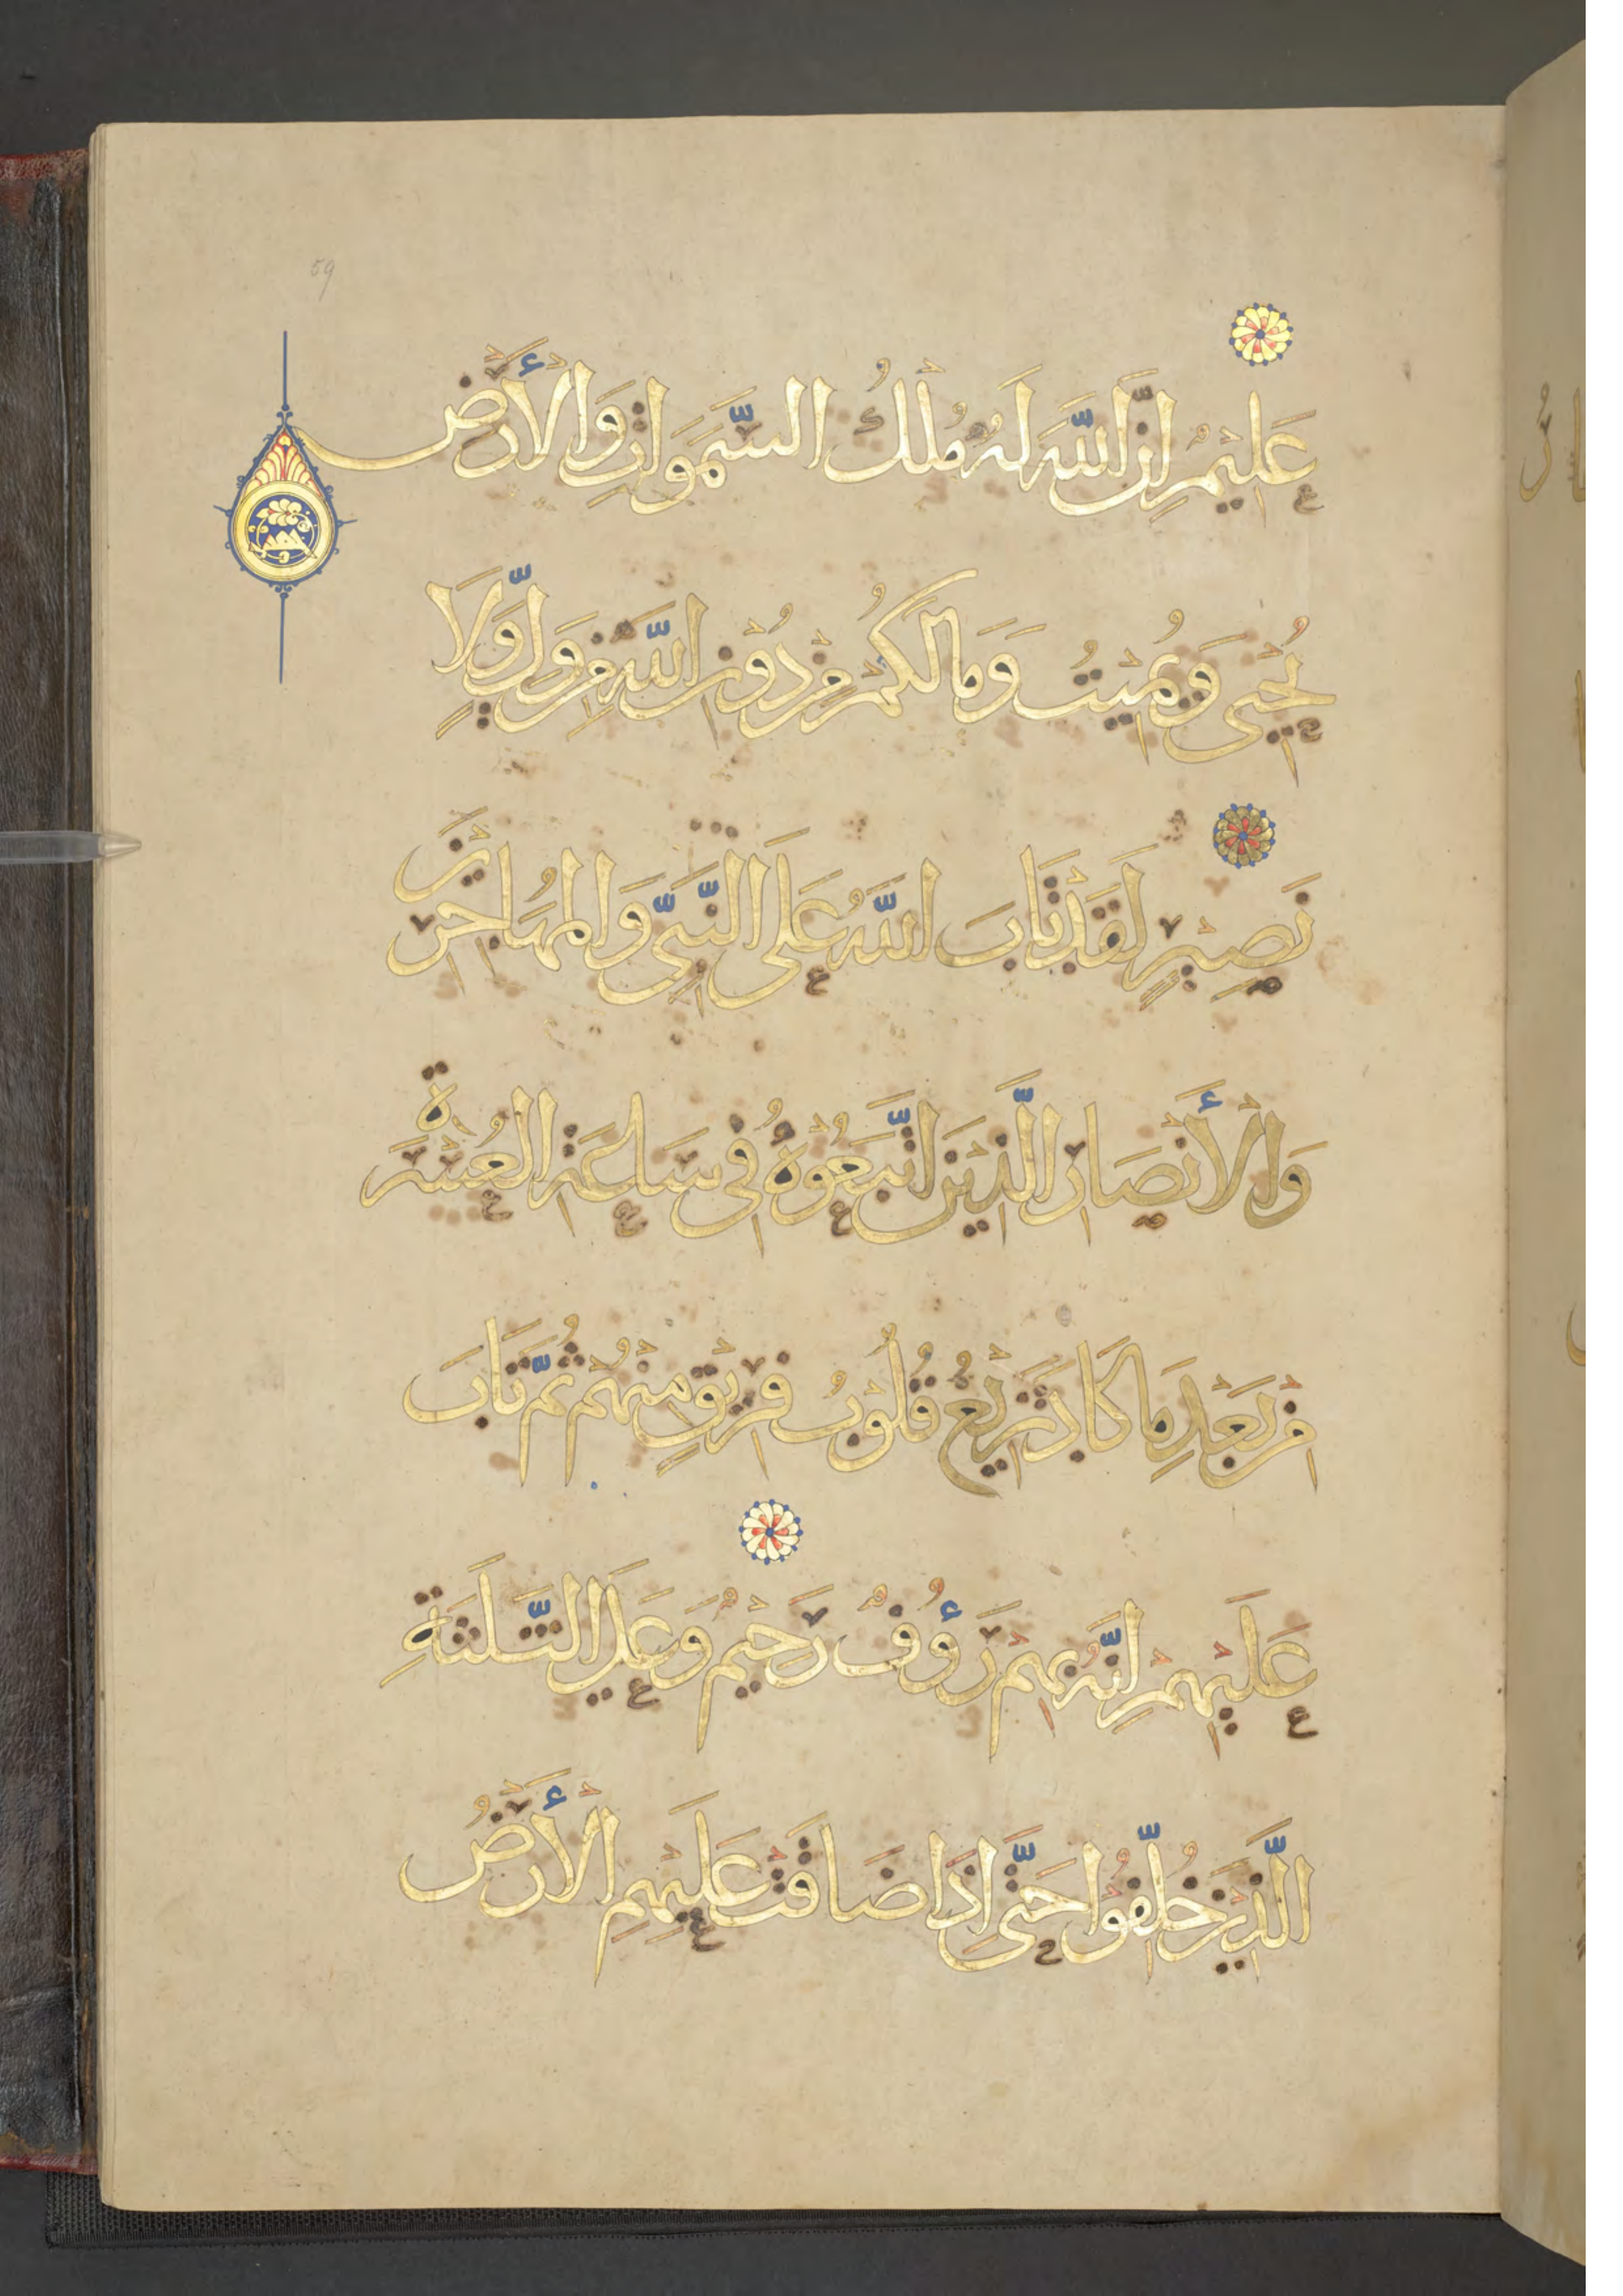 59
عَلِيْمٌ اِنَّ اللّٰهَ لَهُ مُلْكُ السَّمَوَاتِ وَالْأَرْضِ
يُحْيِي وَيُمِيْتُ وَمَا لَكُمْ مِنْ دُوْنِ اللّٰهِ مِنْ وَلِيٍّ وَلَا
نَصِيْرٍ لَقَدْ تَابَ اللّٰهُ عَلَى النَّبِيِّ وَالْمُهَاجِرِيْنَ
وَالْأَنْصَارِ الَّذِيْنَ اتَّبَعُوْهُ فِي سَاعَةِ الْعُسْرَةِ
مِنْ بَعْدِ مَا كَادَ تَزِيْغُ قُلُوْبُ فَرِيْقٍ مِنْهُمْ ثُمَّ تَابَ
عَلَيْهِمْ اِنَّهُ بِهِمْ رَؤُفٌ رَحِيْمٌ وَعَلَى الثَّلَثَةِ
الَّذِيْنَ خُلِّفُوْا حَتَّى اِذَا ضَاقَتْ عَلَيْهِمِ الْأَرْضُ